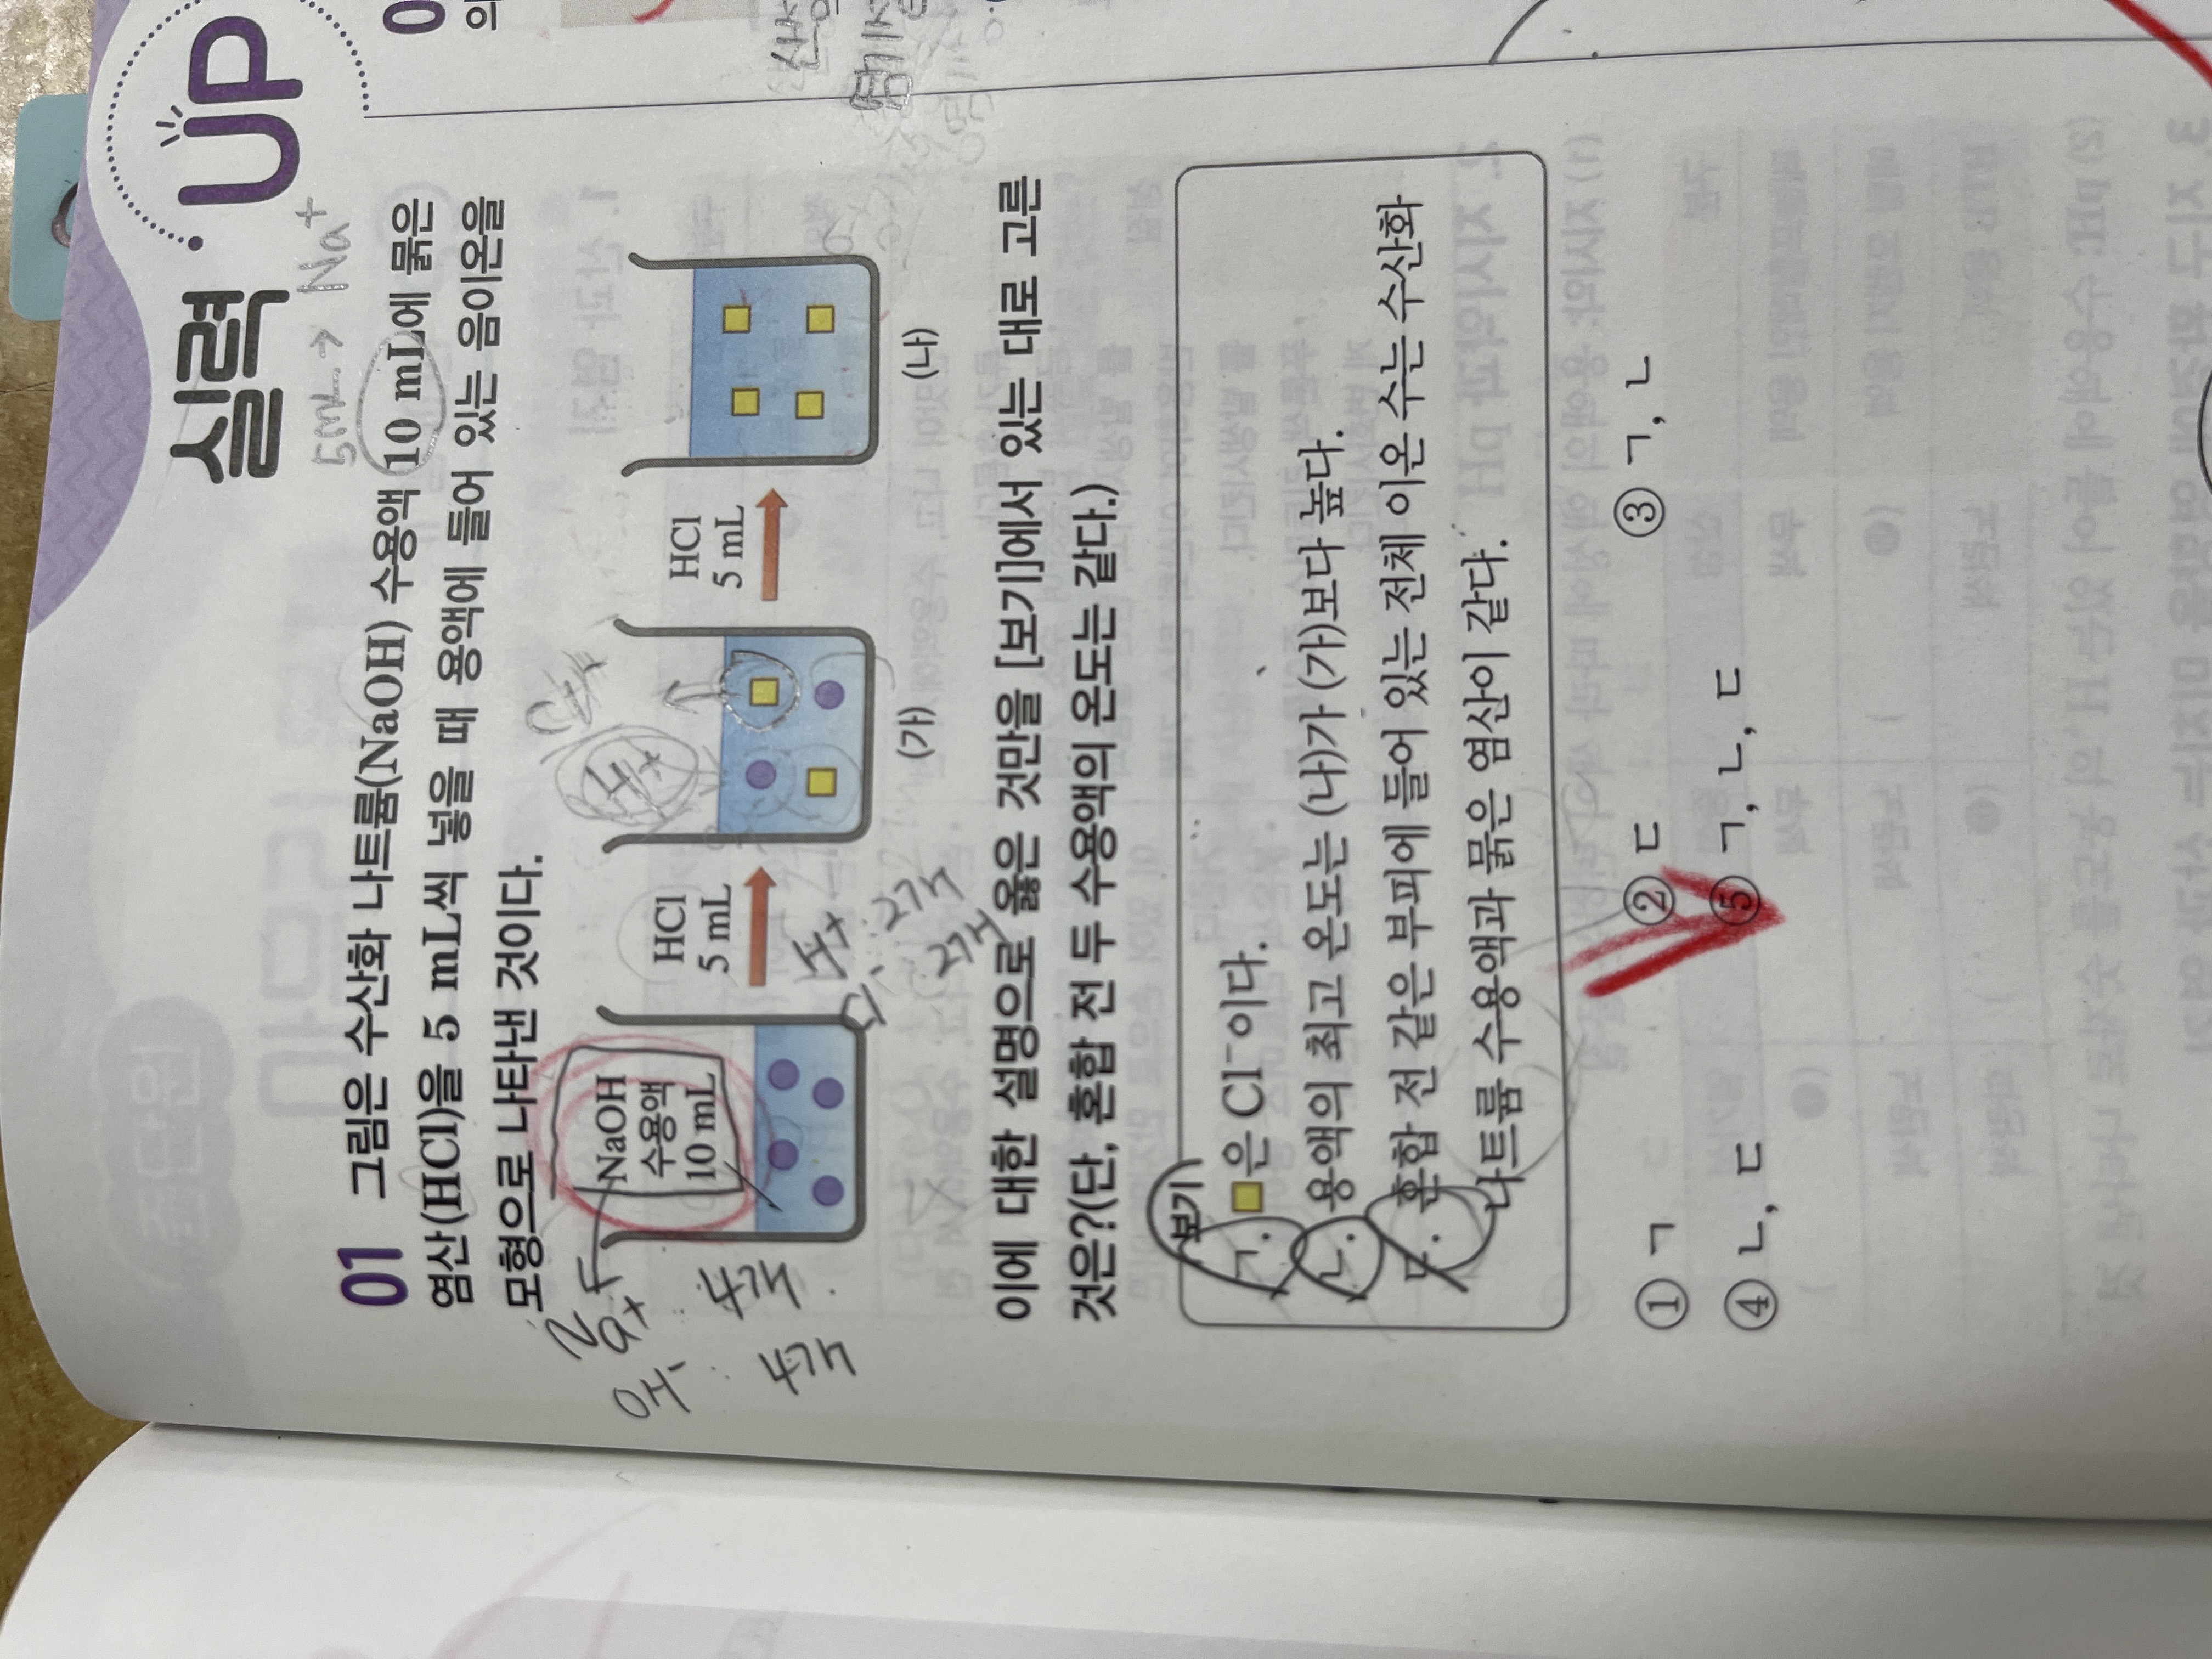 실력 UP
5mL → Na⁺
01 그림은 수산화 나트륨(NaOH) 수용액 10 mL에 묽은
염산(HCl)을 5 mL씩 넣을 때 용액에 들어 있는 음이온을
모형으로 나타낸 것이다.
NaOH
수용액
10 mL
HCl
5 mL
HCl
5 mL
(가)
(나)
Na⁺ : 4개
OH⁻ : 4개
H⁺ : 2개
2개
이에 대한 설명으로 옳은 것만을 [보기]에서 있는 대로 고른
것은?(단, 혼합 전 두 수용액의 온도는 같다.)
보기
ㄱ. 은 Cl⁻이다.
ㄴ. 용액의 최고 온도는 (나)가 (가)보다 높다.
ㄷ. 혼합 전 같은 부피에 들어 있는 전체 이온 수는 수산화
나트륨 수용액과 묽은 염산이 같다.
① ㄱ ② ㄷ ③ ㄱ, ㄴ
④ ㄴ, ㄷ ⑤ ㄱ, ㄴ, ㄷ